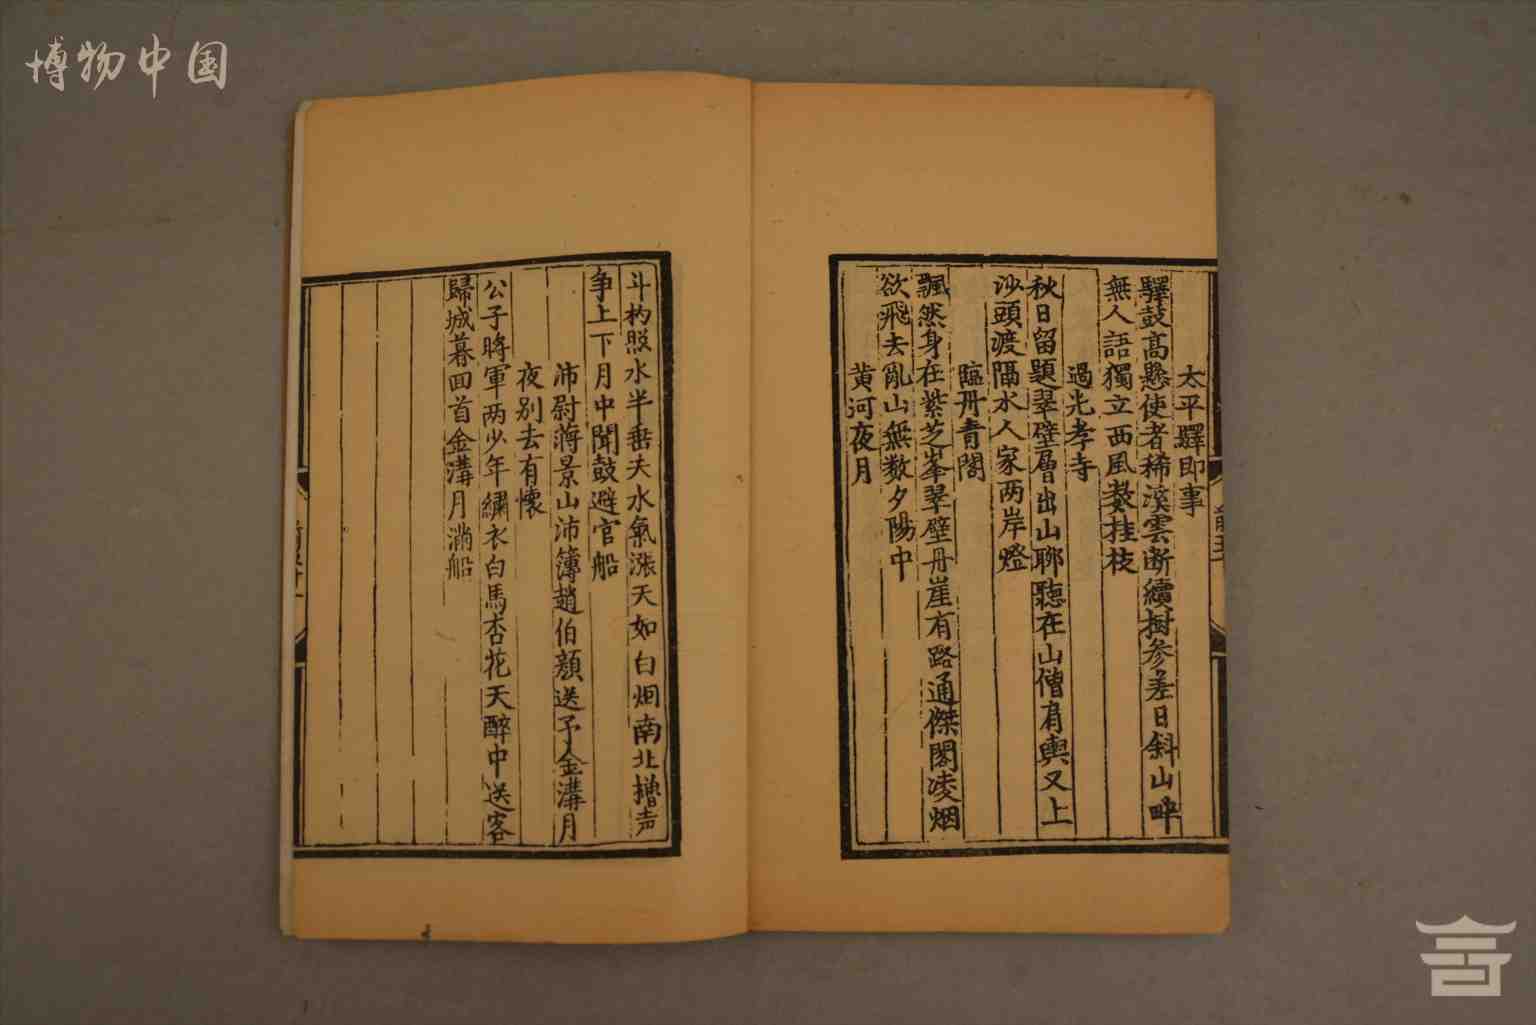 博物中国
太平驛即事
驛鼓高懸使者稀溪雲断續樹参差日斜山畔
無人語獨立西風数桂枝
過光孝寺
秋日留題翠壁層出山聊聴在山僧肩輿又上
沙頭渡隔水人家两岸燈
臨丹青閣
飄然身在紫芝峯翠壁丹崖有路通傑閣凌烟
欲飛去亂山無数夕陽中
黄河夜月
斗杓照水半垂夫水氣漲天如白烟南北櫓声
争上下月中聞鼓避官船
沛尉蒋景山沛簿趙伯顔送予金溝月
夜别去有懐
公子将軍两少年繡衣白馬杏花天醉中送客
歸城暮回首金溝月満船